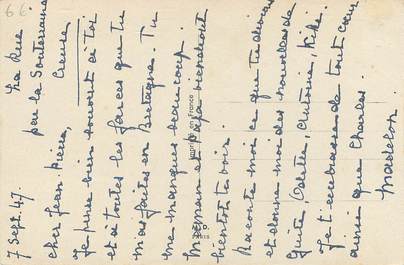 66
7 Sept. 47.
La Rue
par la Souterraine
Creuse
cher Jean Pierre,
Je pense bien souvent à toi
et à toutes les farces que tu
m'as faites en Bretagne. Tu
me manques beaucoup.
Maman et Papa viendront
bientôt te voir.
Raconte moi ce que tu deviens
et donne moi des nouvelles de
Guite, Odette, Antoine, Kiki.
Je t'embrasse de tout cœur
ainsi que Charles.
Madelon
Imprimé en France